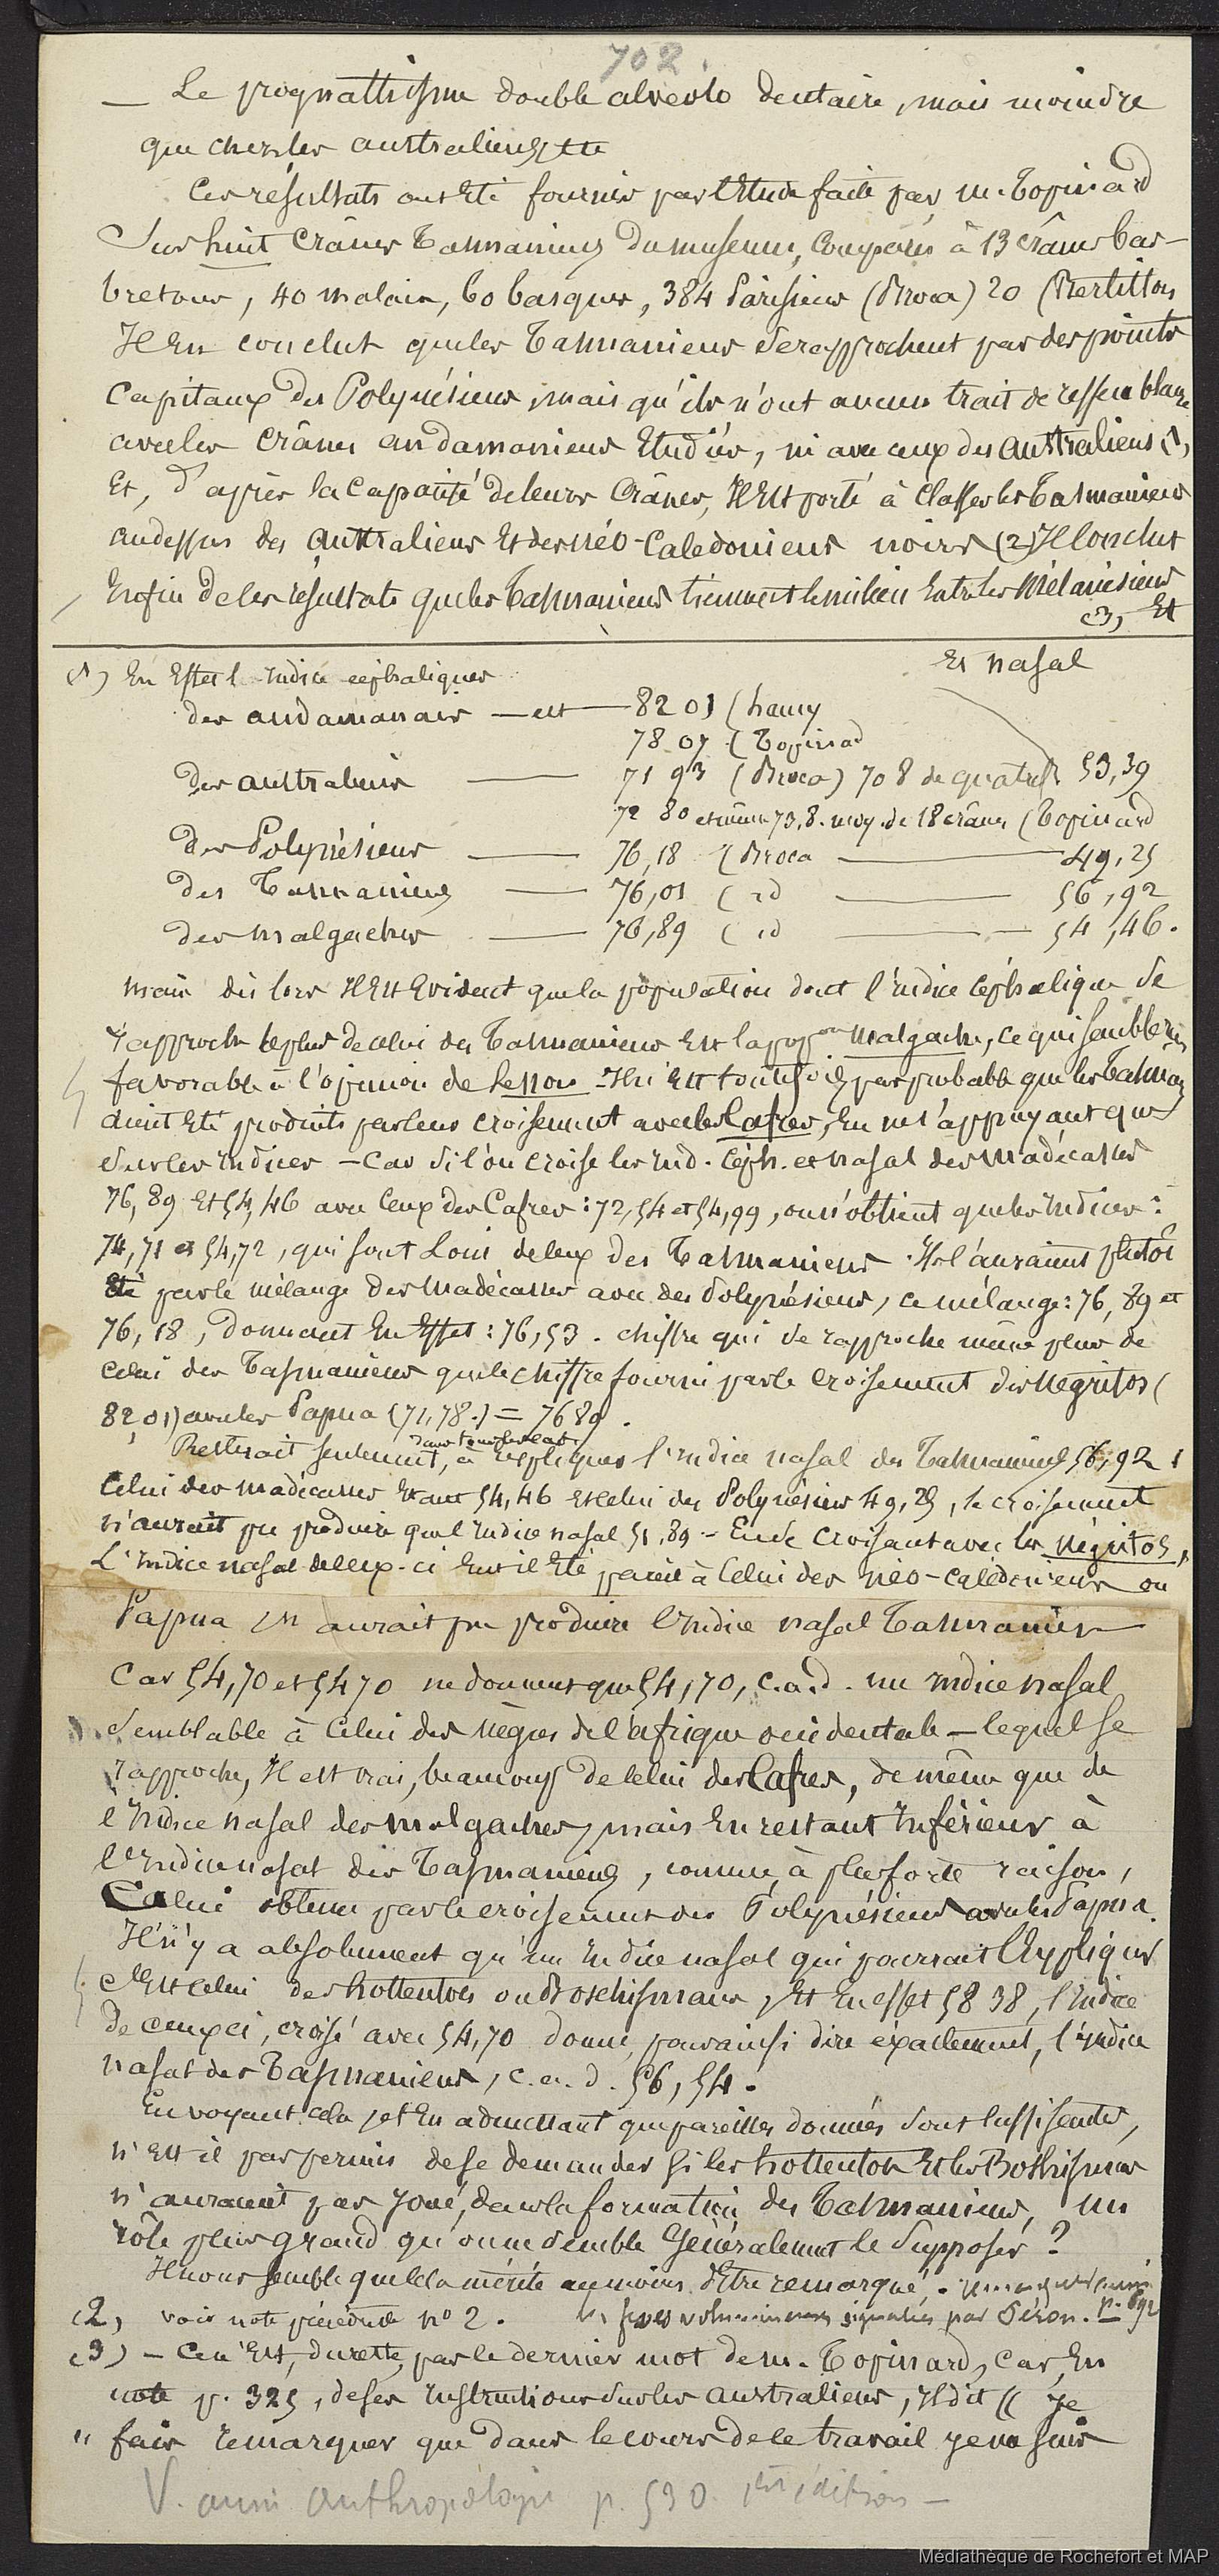 702.
— Le prognathisme double alveolo dentaire, mais moindre
que chez les australiens, etc
Ces résultats ont été fournis par l'Etude faite par m. Topinard
Sur huit Crânes Tasmaniens du museum, Comparés à 13 crânes bas-
bretons, 40 malais, 60 basques, 384 Parisiens (Broca) 20 (Bertillon
Il En conclut que les Tasmaniens se rapprochent par des points
Capitaux des Polynésiens, mais qu'ils n'ont aucun trait de ressemblance
avec les Crânes andamaniens Etudiés, ni avec ceux des australiens (1,
Et, d'après la Capacité de leurs Crânes, Il Est porté à Classer les Tasmaniens
audessus des australiens Et des néo-Caledoniens noirs (2) Il Conclut
Enfin de ces résultats que les Tasmaniens tiennent le milieu Entre les Mélanésiens
(3, Et
(1) En Effet l'indice céphalique Et nasal
des andamanais — est — 82 01 (hamy
78 07 (Topinard
des australiens — 71 93 (Broca) 70 8 de quatref. 53,39
72 80 et même 73,8. moy. de 18 crânes (Topinard
Des Polynésiens — 76,18 (Broca — 49,25
Des Tasmaniens — 76,01 (id — 56,92
des malgaches — 76,89 (id — 54,46.
mais dès lors Il Est Evident que la population dont l'indice Céphalique se
rapproche le plus de celui des Tasmaniens Est la pop.on malgache, ce qui semblerait
favorable à l'opinion de Lesson. Il n'Est toutefois pas probable que les Tasman.
aient Eté produits par leur croisement avec les Cafres, En ne s'appuyant que
sur les indices — Car si l'on croise les ind. Céph. et nasal des madécasses
76,89 Et 54,46 avec ceux des Cafres : 72,54 et 54,99, on n'obtient que les indices :
74,71 et 54,72, qui sont Loin de ceux des Tasmaniens. Ils l'auraient plutôt
Eté par le mélange des madécasses avec des Polynésiens, ce mélange : 76,89 et
76,18, donnant En Effet : 76,53. chiffre qui se rapproche même plus de
celui des Tasmaniens que le chiffre fourni par le Croisement des Négritos (
82,01) avec les Papua (71,78.) = 76 89.
dans tous les cas
Resterait seulement, à expliquer l'indice nasal des Tasmaniens 56,92 ;
Celui des madécasses Etant 54,46 Et celui des Polynésiens 49,25, le croisement
n'aurait pu produire que l'indice nasal 51,89 — En se Croisant avec les Négritos,
L'indice nasal de ceux-ci Eut il Eté pareil à Celui des néo-calédoniens ou
Papua n'aurait pu produire l'indice nasal Tasmanien
Car 54,70 et 54 70 ne donnent que 54,70, c.a.d. un indice nasal
semblable à Celui des nègres de l'afrique occidentale — lequel se
rapproche, Il est vrai, beaucoup de celui des Cafres, de même que de
l'indice nasal des malgaches, mais En restant Inférieur à
l'Indice nasal des Tasmaniens, comme, à plus forte raison,
Celui obtenu par le croisement des Polynésiens avec les Papua.
Il n'y a absolument qu'un Indice nasal qui pourrait l'Expliquer
C'Est celui des hottentots ou Boschismans, Et En effet 58 38, l'Indice
de ceux ci, croisé avec 54,70 donne, pour ainsi dire exactement, l'indice
nasal des Tasmaniens, c.a.d. 56,54.
En voyant cela, et En admettant que pareilles données sont suffisantes,
n'Est il pas permis de se demander si les hottentots Et les Boshismans
n'auraient pas joué, dans la formation des Tasmaniens, un
rôle plus grand qu'on ne semble Généralement le supposer ?
Il nous semble que cela mérite au moins d'Etre remarqué.
(2, voir note précédente nº 2. signalées par Péron. p. 692
(3) — Ce n'Est, du reste, pas le dernier mot de m. Topinard, car, En
note p. 325, de ses Instructions sur les australiens, Il dit (( je
" fais remarquer que dans le cours de ce travail je ne suis
V. aussi Anthropologie p. 530. 1ere édition —
Médiathèque de Rochefort et MAP